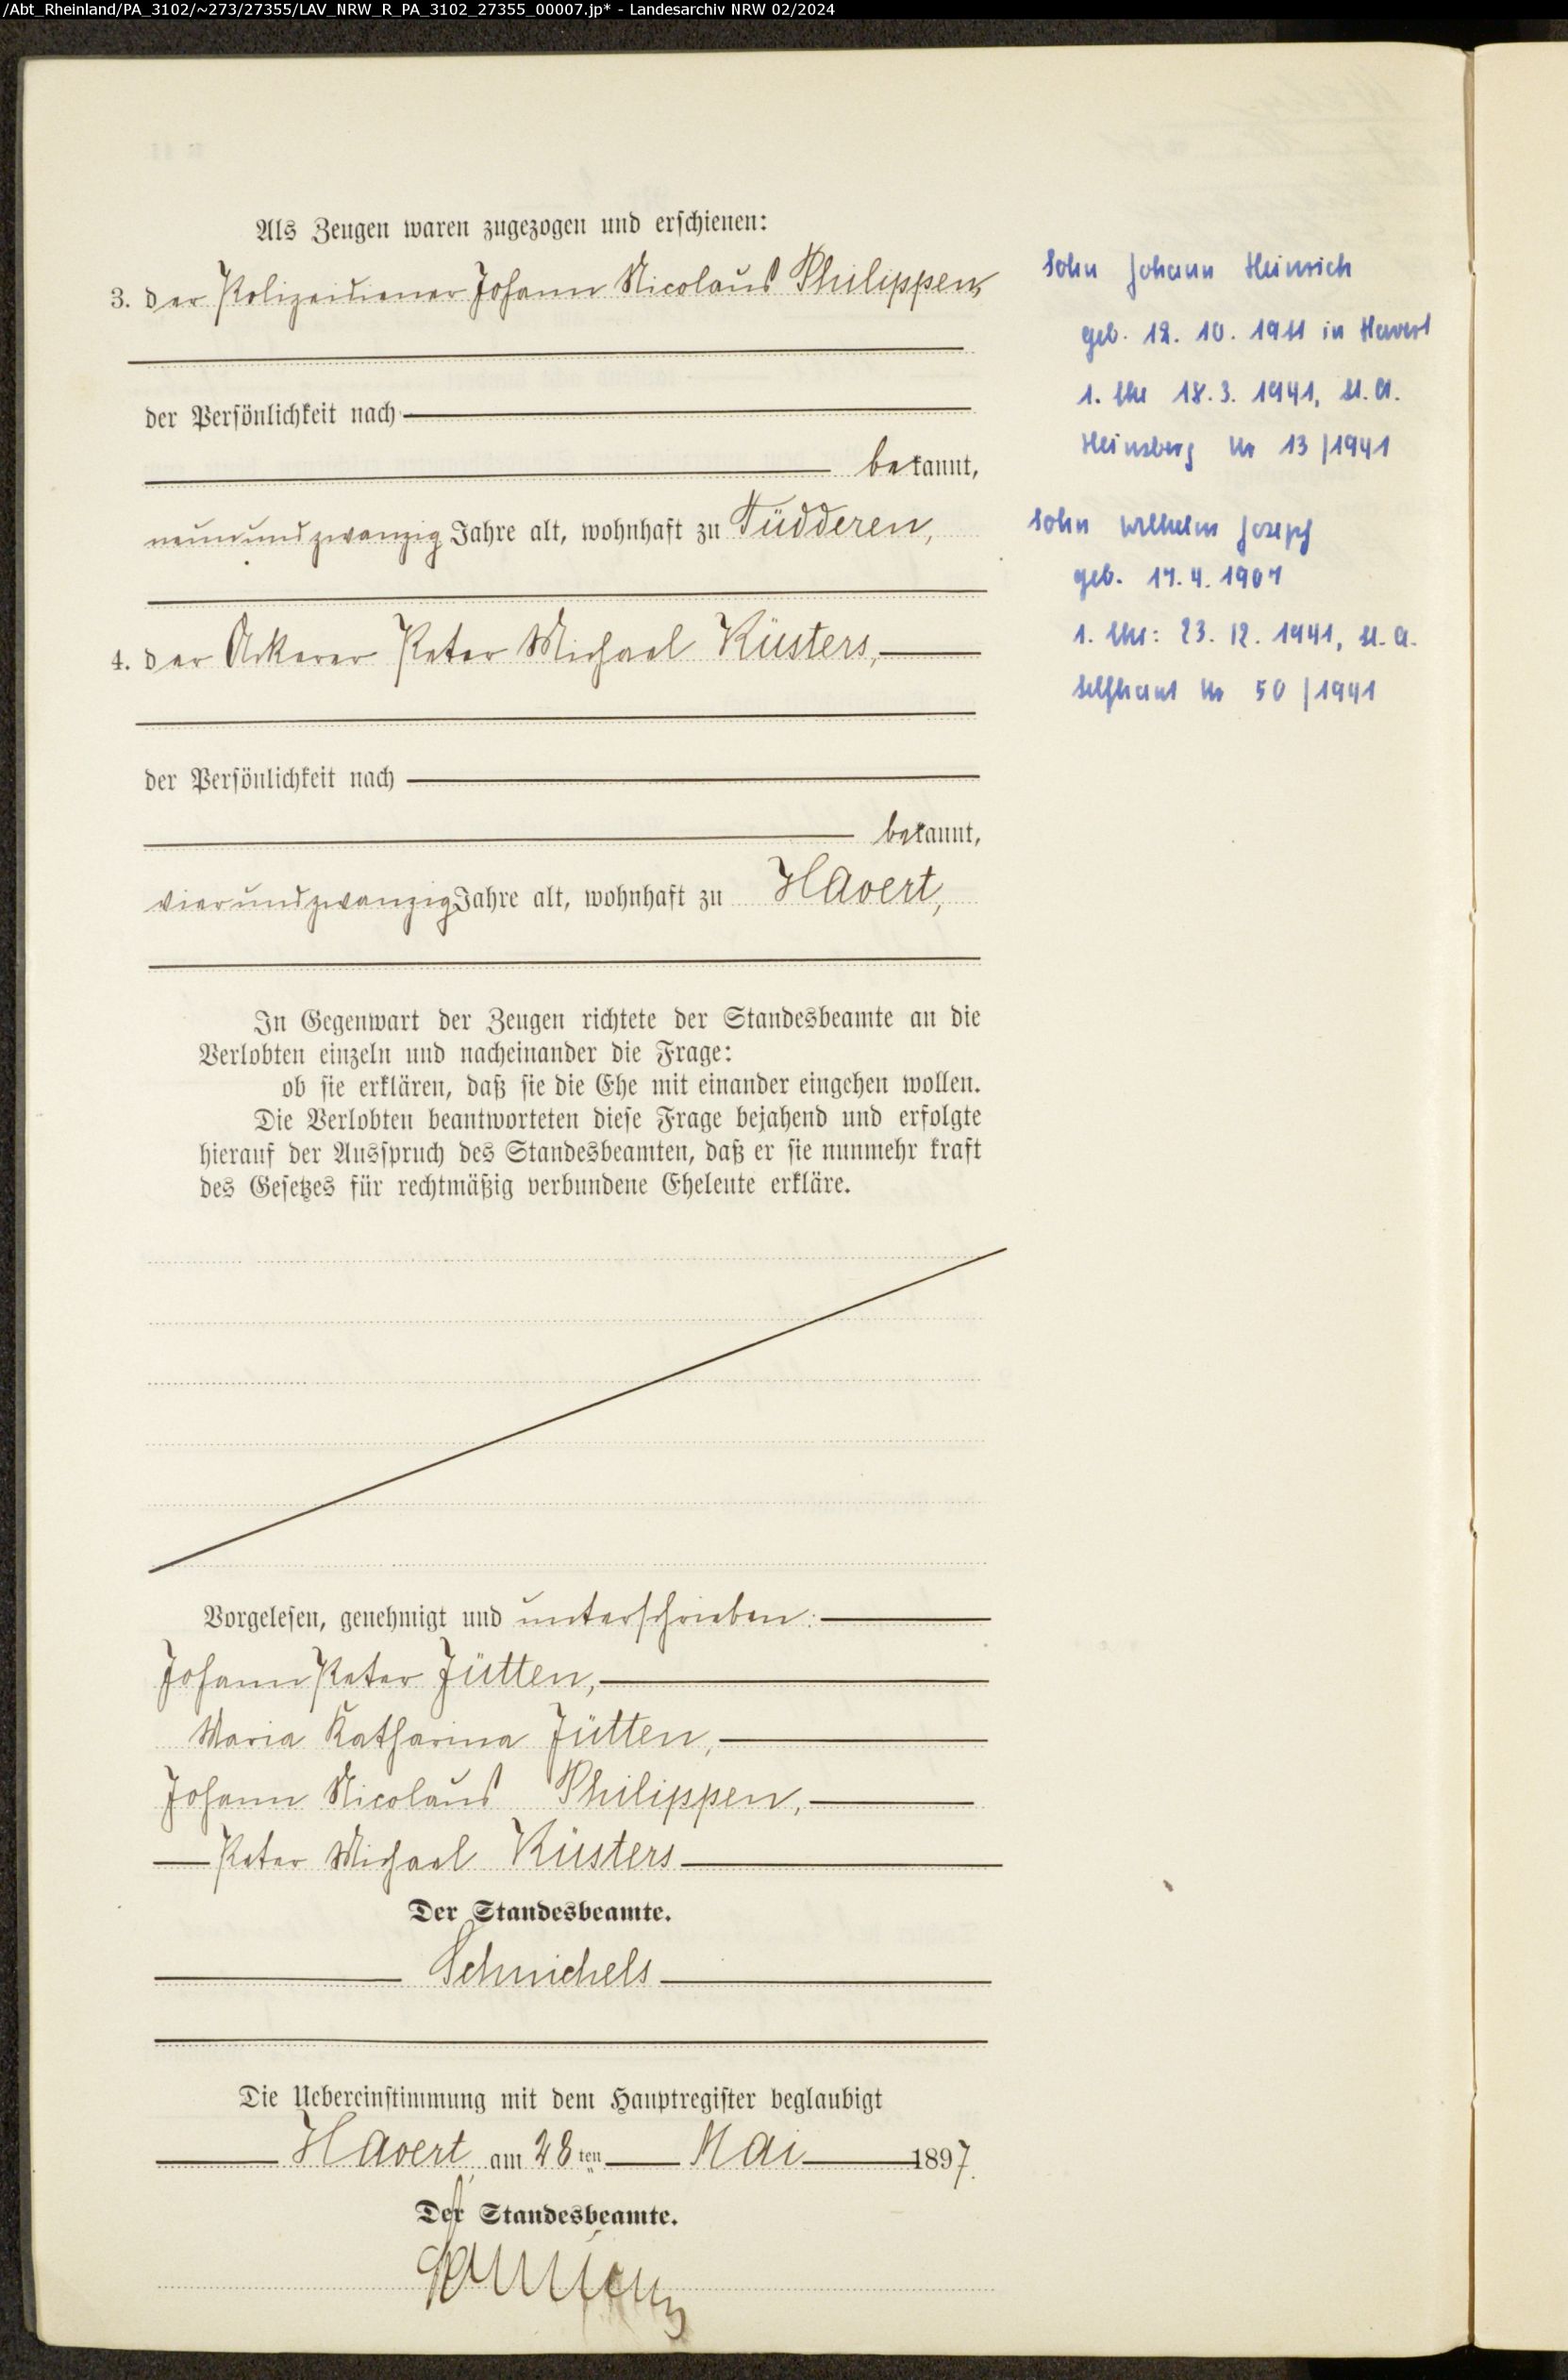 /Abt_Rheinland/PA_3102/~273/27355/LAV_NRW_R_PA_3102_27355_00007.jp* - Landesarchiv NRW 02/2024
Als Zeugen waren zugezogen und erschienen:
3. der Polizeidiener Johann Nicolaus Philippen,
der Persönlichkeit nach
bekannt,
neunundzwanzig Jahre alt, wohnhaft zu Tüdderen,
4. der Ackerer Peter Michael Küsters,
der Persönlichkeit nach
bekannt,
vierundzwanzig Jahre alt, wohnhaft zu Havert,
In Gegenwart der Zeugen richtete der Standesbeamte an die
Verlobten einzeln und nacheinander die Frage:
ob sie erklären, daß sie die Ehe mit einander eingehen wollen.
Die Verlobten beantworteten diese Frage bejahend und erfolgte
hierauf der Ausspruch des Standesbeamten, daß er sie nunmehr kraft
des Gesetzes für rechtmäßig verbundene Eheleute erkläre.
Vorgelesen, genehmigt und unterschrieben:
Johann Peter Jütten,
Maria Katharina Jütten,
Johann Nicolaus Philippen,
Peter Michael Küsters
Der Standesbeamte.
Schmichels
Die Uebereinstimmung mit dem Hauptregister beglaubigt
Havert, am 28ten Mai 1897.
Der Standesbeamte.
Sohn Johann Heinrich
geb. 12. 10. 1911 in Havert
1. Ehe 18. 3. 1941, St. A.
Heinsberg Nr 13/1941
Sohn Wilhelm Joseph
geb. 17. 4. 1907
1. Ehe: 23. 12. 1941, St. A.
Selfkant Nr 50/1941